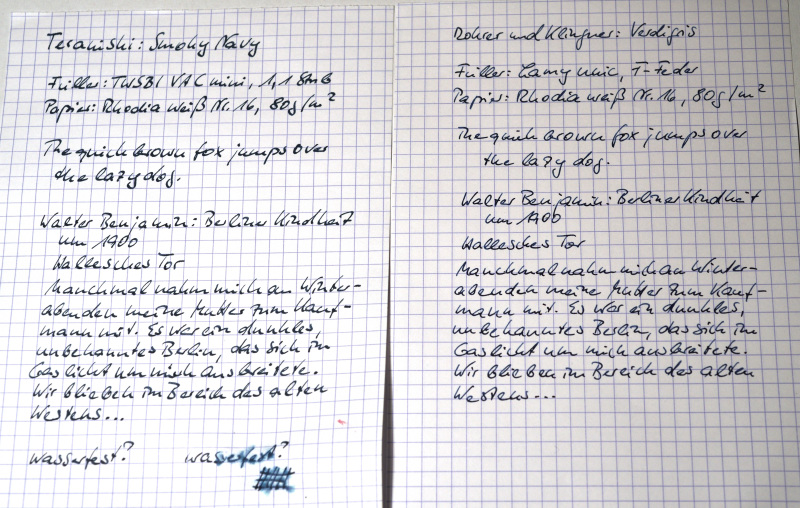 Teraniski: Smoky Navy
Füller: TWSBI VAC mini, 1,1 Stub
Papier: Rhodia weiß Nr. 16, 80g/m²
The quick brown fox jumps over
the lazy dog.
Walter Benjamin: Berliner Kindheit
um 1900
Wallesches Tor
Manchmal nahm mich an Winter-
abenden meine Mutter zum Kauf-
mann mit. Es war ein dunkles,
unbekanntes Berlin, das sich im
Gaslicht um mich ausbreitete.
Wir blieben im Bereich des alten
Westens...
wasserfest? wasserfest?
Rohrer und Klingner: Verdigris
Füller: Lamy unic, F-Feder
Papier: Rhodia weiß Nr. 16, 80g/m²
The quick brown fox jumps over
the lazy dog.
Walter Benjamin: Berliner Kindheit
um 1900
Wallesches Tor
Manchmal nahm mich an Winter-
abenden meine Mutter zum Kauf-
mann mit. Es war ein dunkles,
unbekanntes Berlin, das sich im
Gaslicht um mich ausbreitete.
Wir blieben im Bereich des alten
Westens...